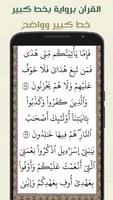 القرآن برواية بخط كبير
خط كبير وواضح
فَإِمَّا يَأْتِيَنَّكُم مِّنِّى هُدًى
فَمَن تَبِعَ هُدَايَ فَلَا خَوْفٌ
عَلَيْهِمْ وَلَا هُمْ يَحْزَنُونَ
وَالَّذِينَ كَفَرُوا وَكَذَّبُوا
بِـَٔايَٰتِنَا أُوْلَٰٓئِكَ أَصْحَٰبُ
النَّارِ هُمْ فِيهَا خَٰلِدُونَ
يَٰبَنِىٓ إِسْرَٰٓءِيلَ اذْكُرُوا
نِعْمَتِىَ الَّتِىٓ أَنْعَمْتُ
عَلَيْكُمْ وَأَوْفُوا